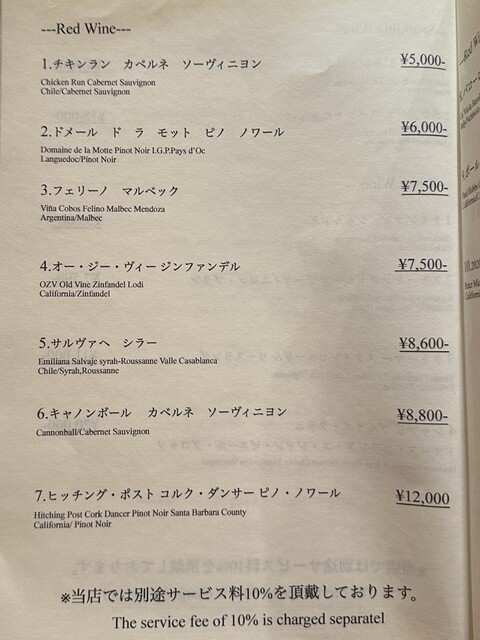 ---Red Wine---
1.チキンラン カベルネ ソーヴィニヨン ¥5,000-
Chicken Run Cabernet Sauvignon
Chile/Cabernet Sauvignon
2.ドメール ド ラ モット ピノ ノワール ¥6,000-
Domaine de la Motte Pinot Noir I.G.P.Pays d'Oc
Languedoc/Pinot Noir
3.フェリーノ マルベック ¥7,500-
Viña Cobos Felino Malbec Mendoza
Argentina/Malbec
4.オー・ジー・ヴィージンファンデル ¥7,500-
OZV Old Vine Zinfandel Lodi
California/Zinfandel
5.サルヴァヘ シラー ¥8,600-
Emiliana Salvaje syrah-Roussanne Valle Casablanca
Chile/Syrah,Roussanne
6.キャノンボール カベルネ ソーヴィニヨン ¥8,800-
Cannonball/Cabernet Sauvignon
7.ヒッチング・ポスト コルク・ダンサー ピノ・ノワール ¥12,000
Hitching Post Cork Dancer Pinot Noir Santa Barbara County
California/ Pinot Noir
※当店では別途サービス料10%を頂戴しております。
The service fee of 10% is charged separatel